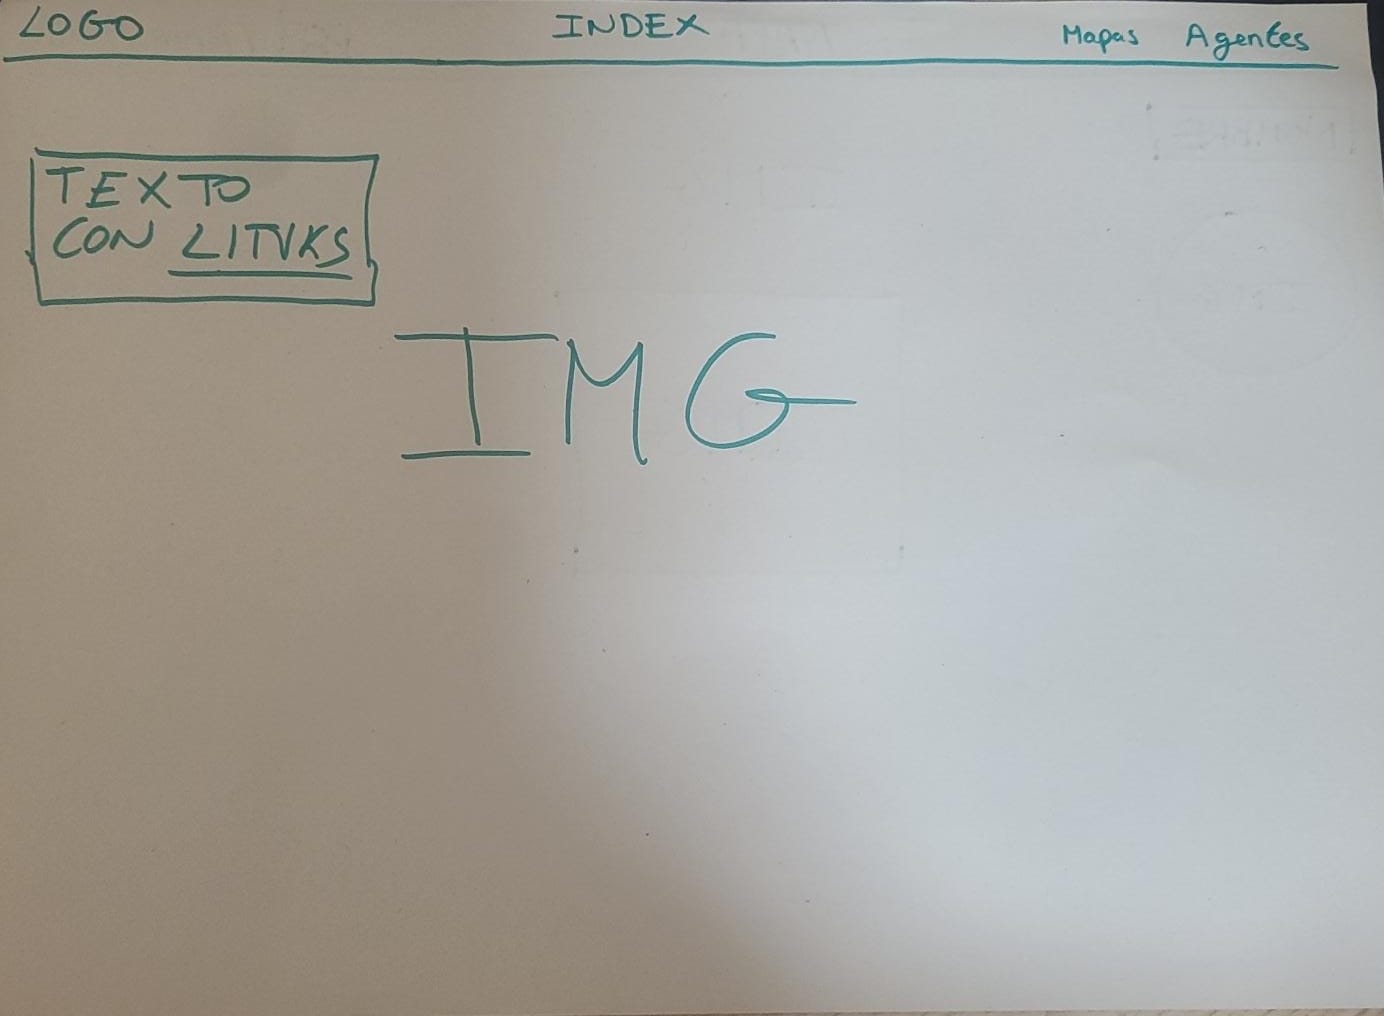 LOGO INDEX Mapas Agentes
TEXTO
CON LINKS
IMG